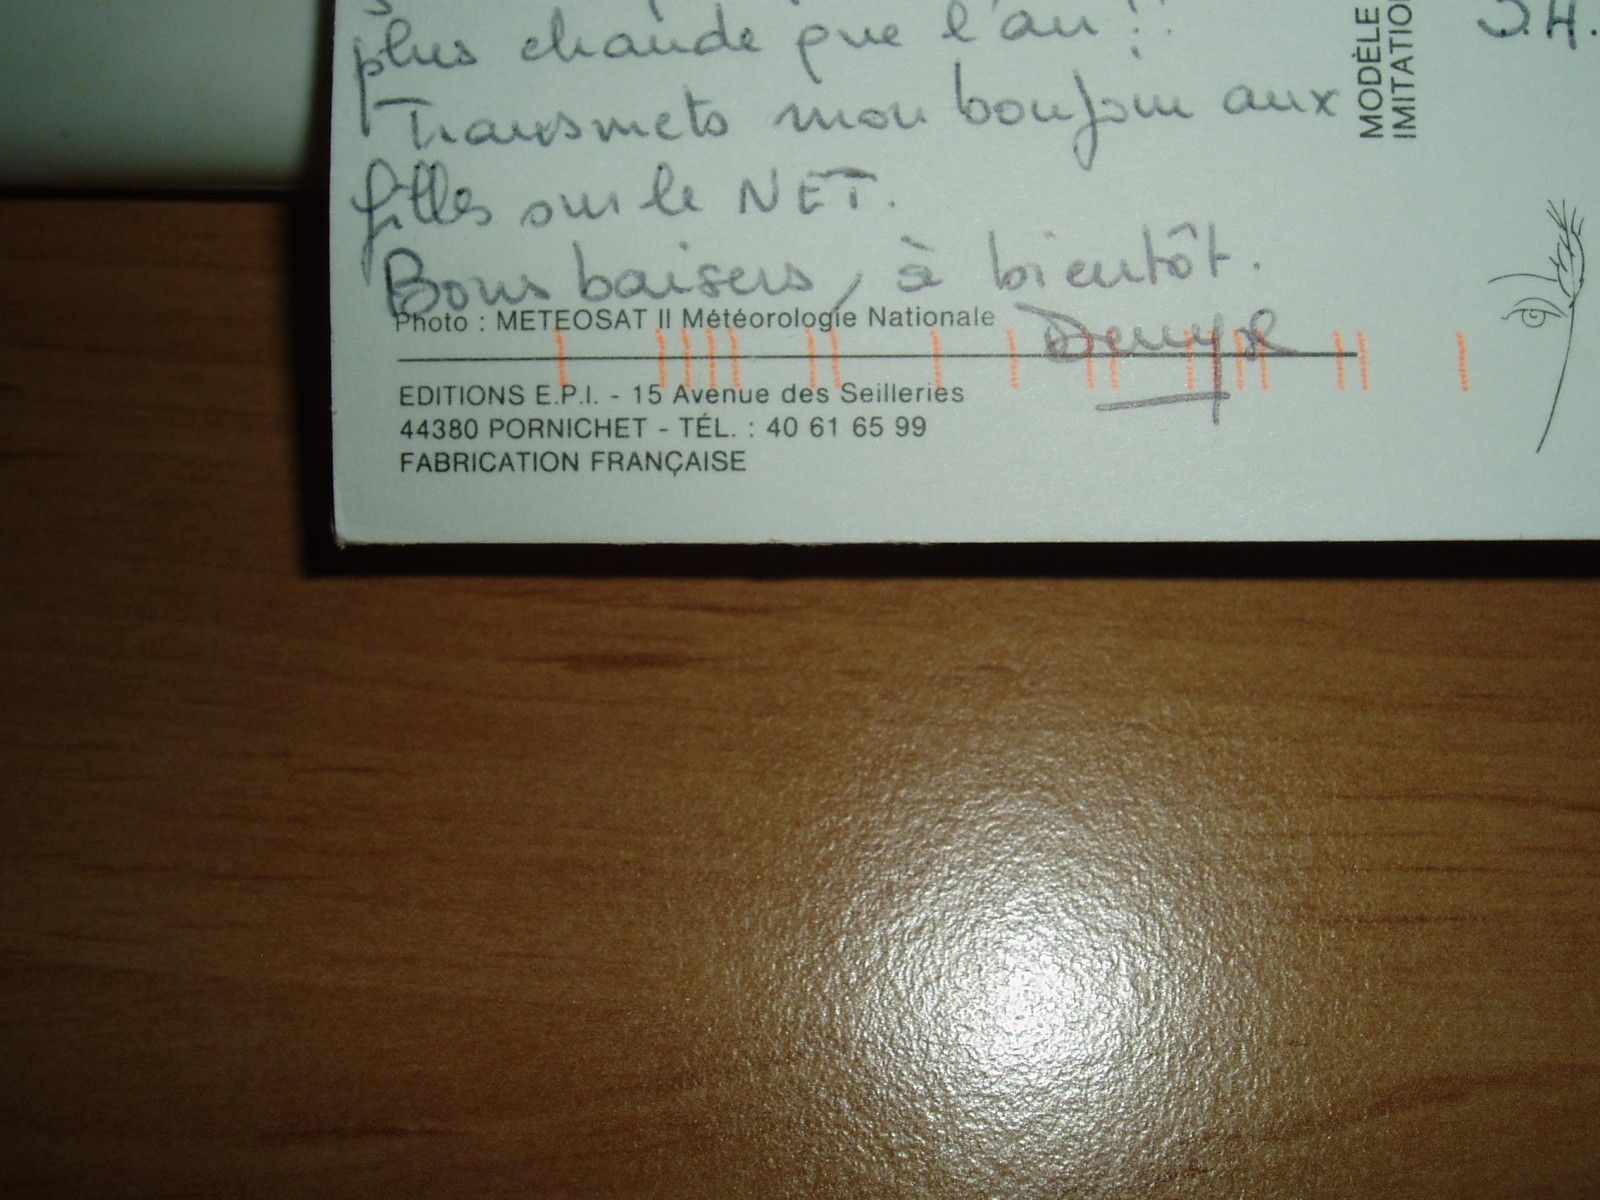 plus chaude que l'air !!
Transmets mon bonjour aux
filles sur le NET.
Bons baisers, à bientôt.
Photo : METEOSAT II Météorologie Nationale
Denyse
EDITIONS E.P.I. - 15 Avenue des Seilleries
44380 PORNICHET - TÉL. : 40 61 65 99
FABRICATION FRANÇAISE
MODÈLE